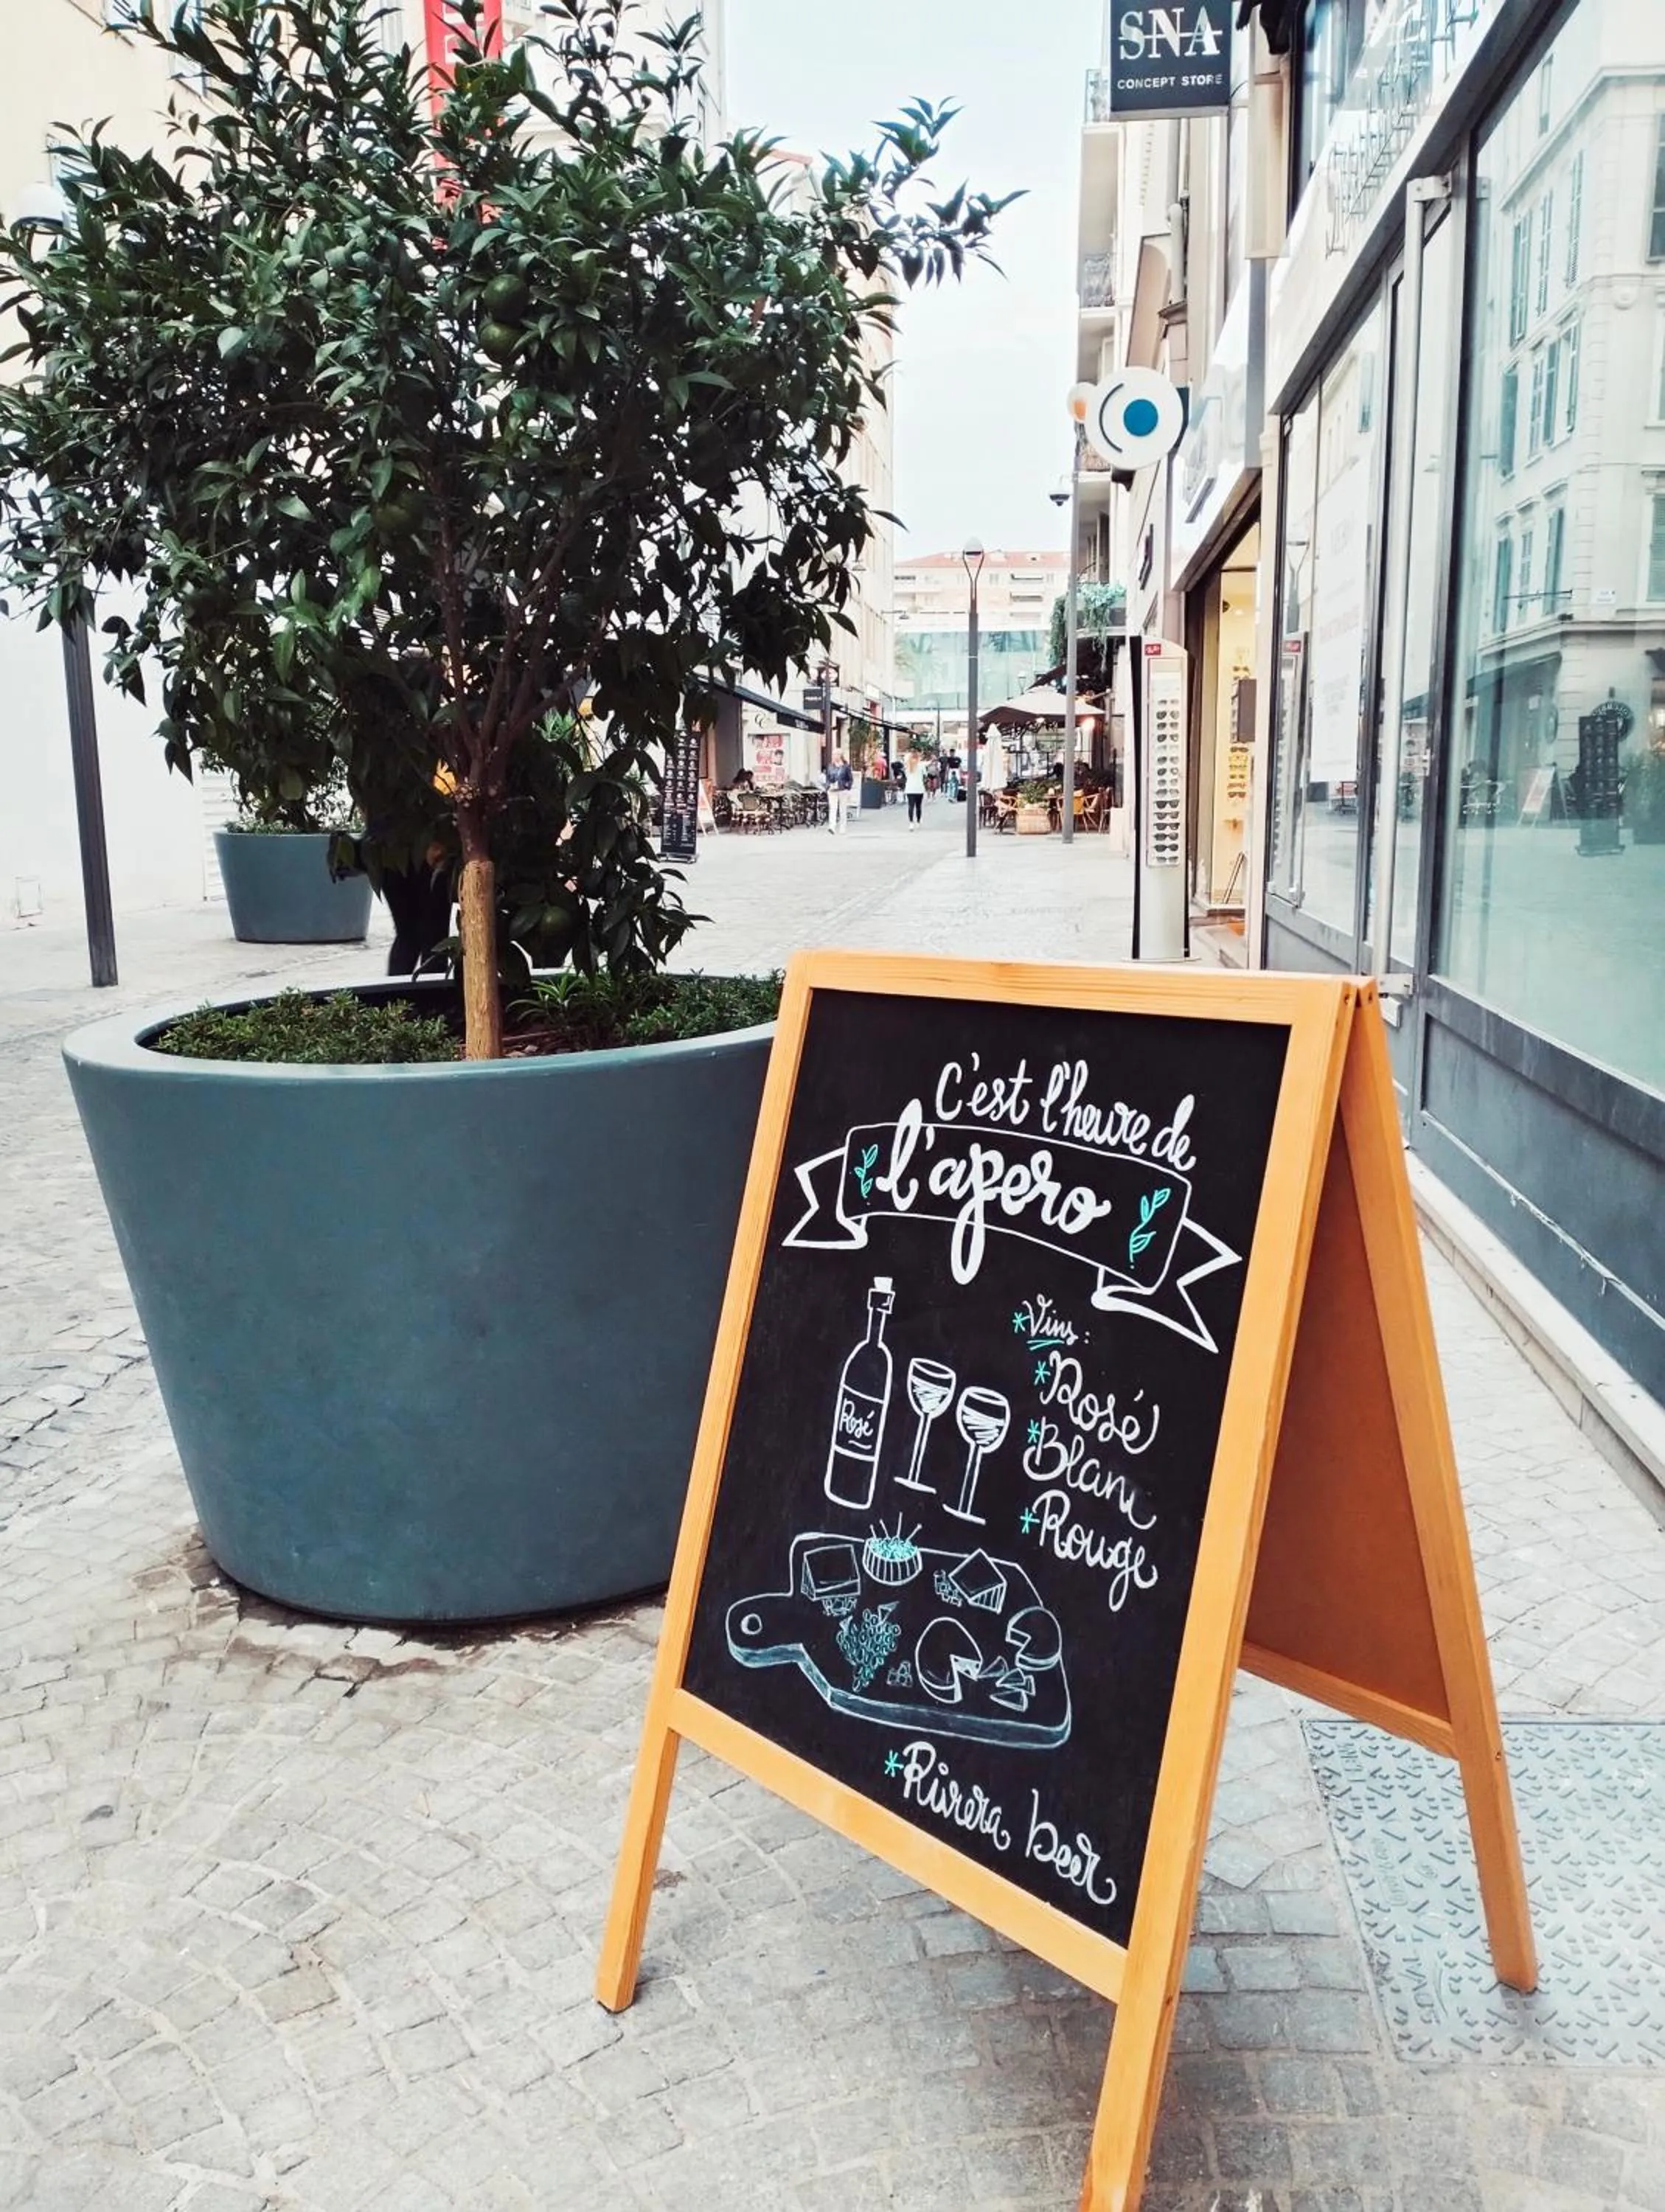 SNA
CONCEPT STORE
C'est l'heure de
l'apero
*Vins:
*Rosé
*Blanc
*Rouge
Rosé
*Rivera beer